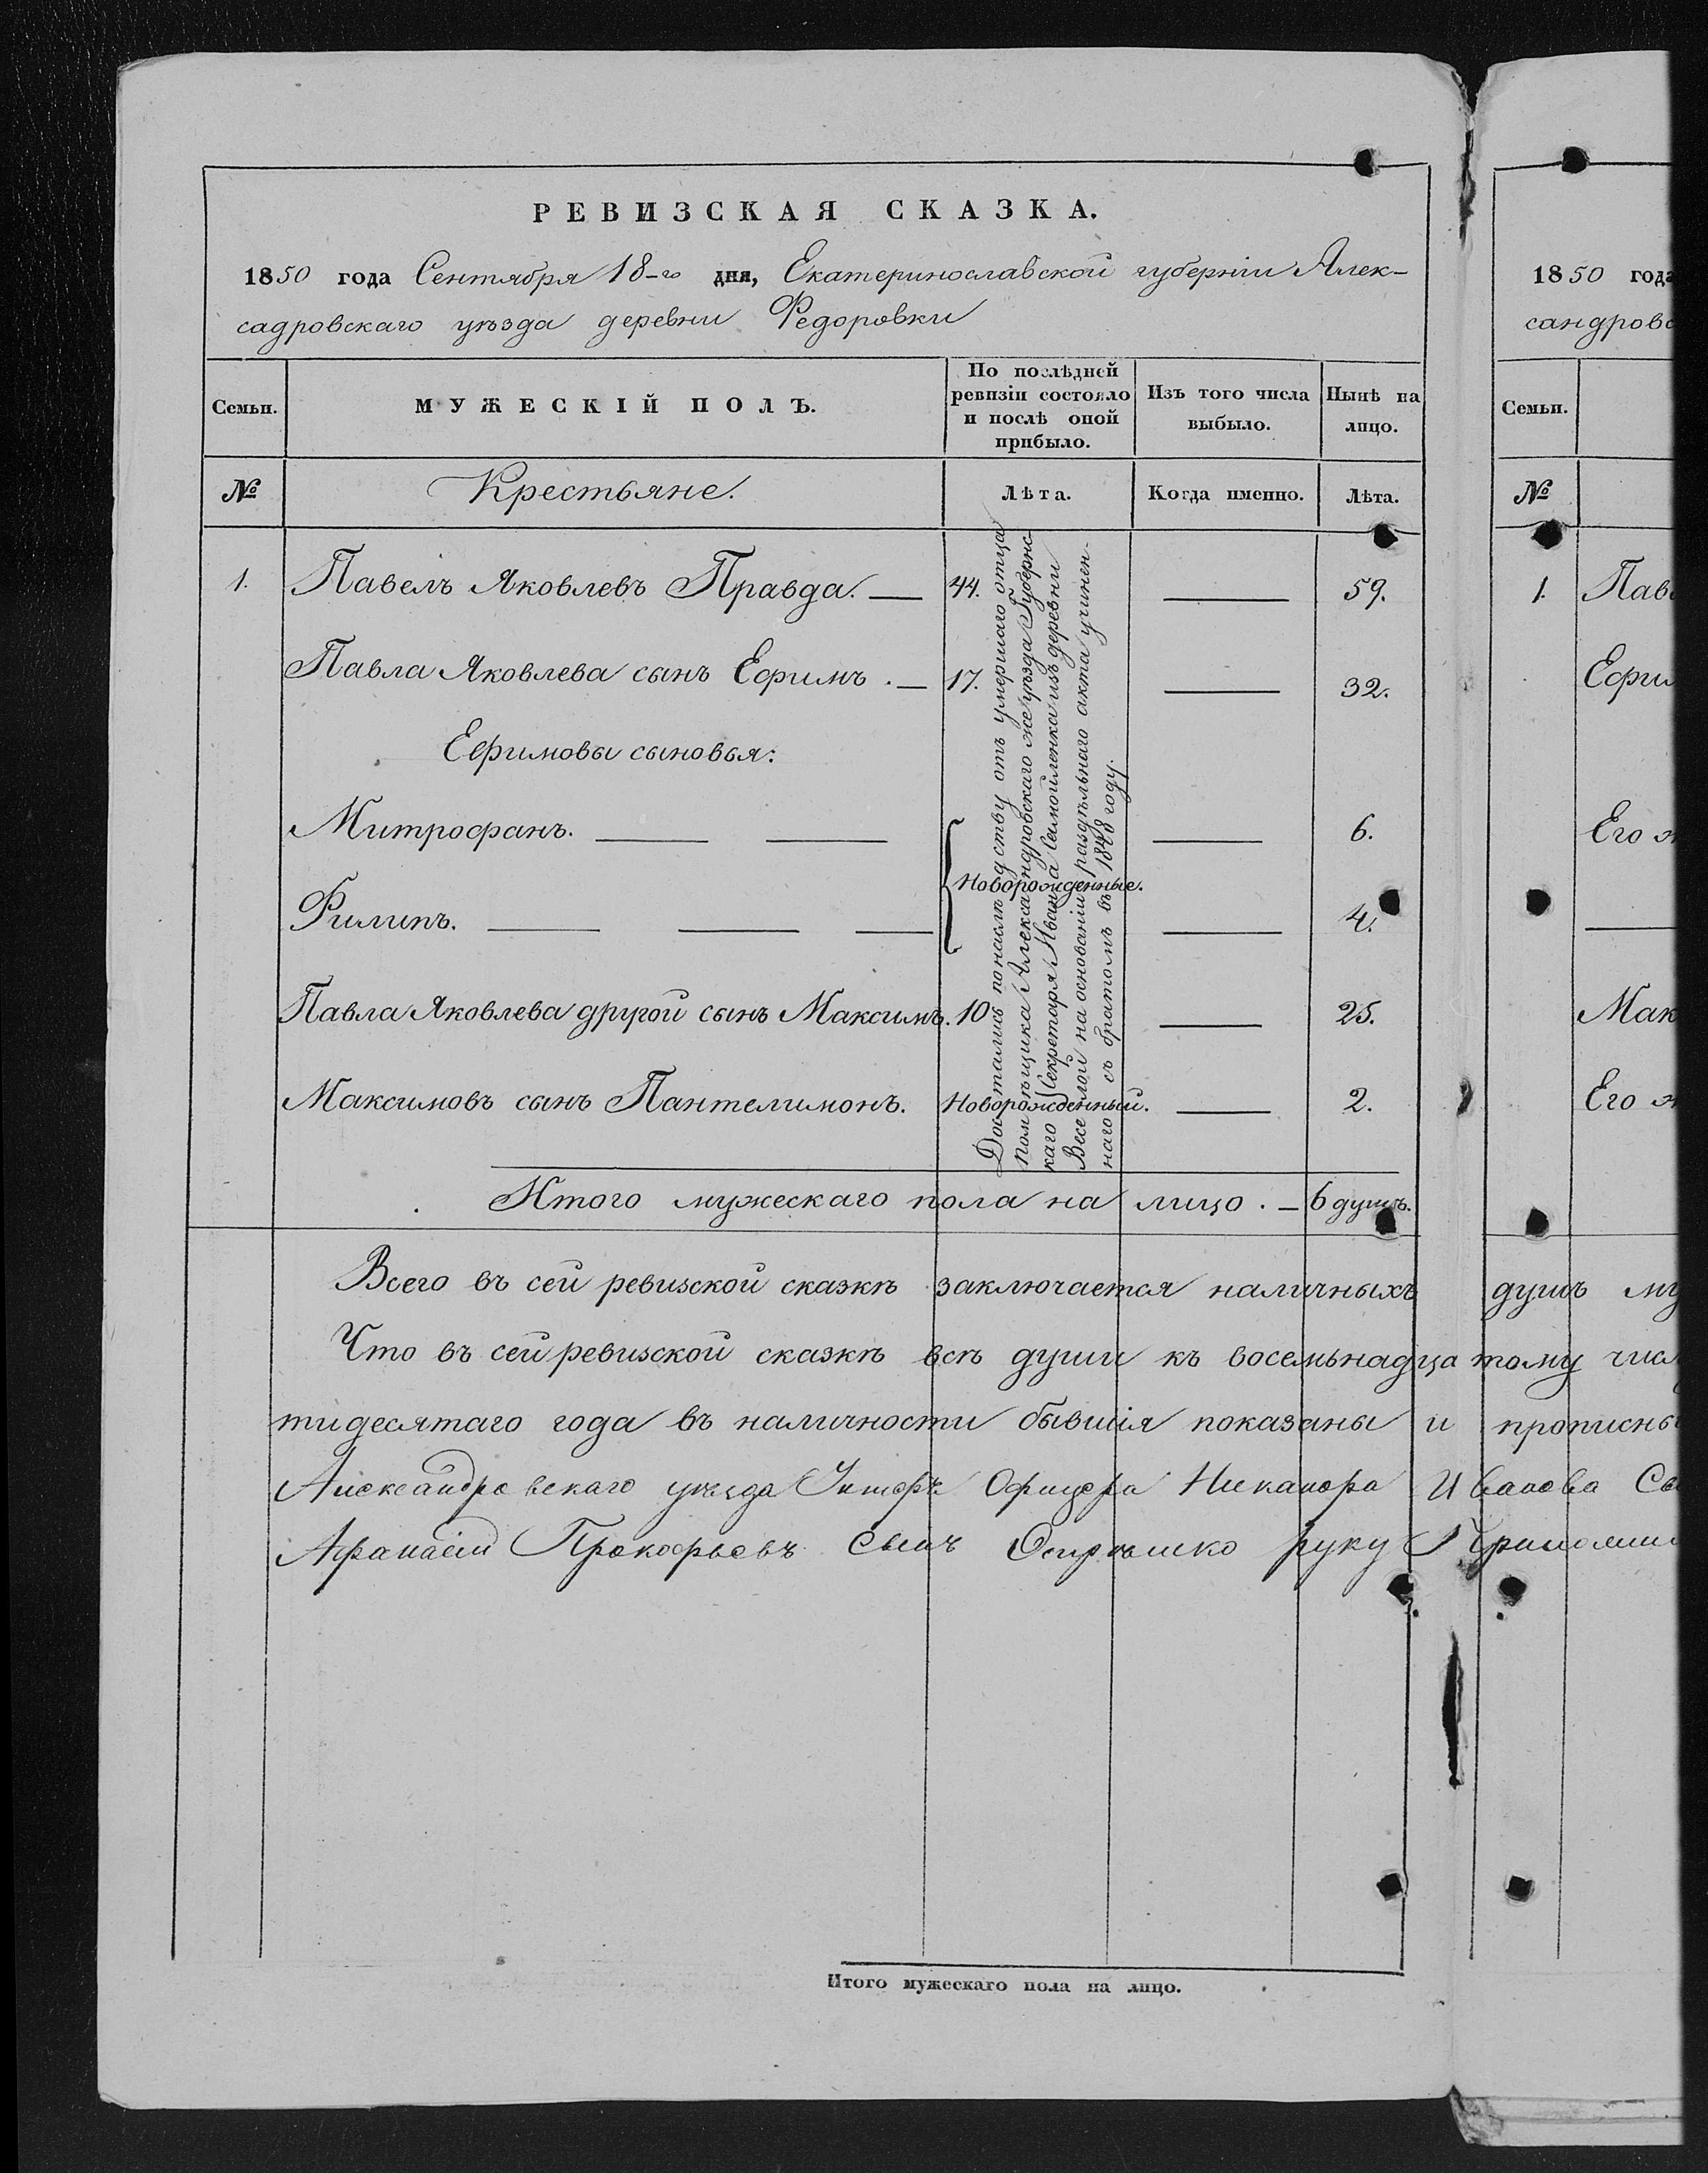 РЕВИЗСКАЯ СКАЗКА.
1850 года Сентября 18-го дня, Екатеринославской губерніи Алек-
садровскаго уѣзда деревни Федоровки
Семьи.
МУЖЕСКІЙ ПОЛЪ.
По послѣдней
ревизіи состояло
и послѣ оной
прибыло.
Изъ того числа
выбыло.
Нынѣ на
лицо.
№ Крестьяне. Лѣта. Когда именно. Лѣта.
1. Павелъ Яковлевъ Правда. — 44. — 59.
Павла Яковлева сынъ Ефимъ. — 17. — 32.
Ефимовы сыновья:
Митрофанъ. — — — 6.
Новорожденные.
Филипъ. — — — — 4.
Павла Яковлева другой сынъ Максимъ. 10 — 25.
Максимовъ сынъ Пантелимонъ. Новорожденный. — 2.
Достались по наслѣдству отъ умершаго отца
помѣщика Александровскаго же уѣзда Губернс-
каго Секретаря Ивана Самойленка изъ деревни
Веселой на основаніи раздѣльнаго акта учинен-
наго съ братомъ въ 1848 году.
Итого мужескаго пола на лицо. — 6 душъ.
Всего въ сей ревизской сказкѣ заключается наличныхъ душъ му
Что въ сей ревизской сказкѣ всѣ души къ восемьнадцатому числ
тидесятаго года въ наличности бывшія показаны и прописны
Александровскаго уѣзда Унтеръ Офицера Никанора Иванова
Афанасій Прокофьевъ Сынъ руку
Итого мужескаго пола на лицо.
1850 года
сандровс
Семьи.
№
1. Павл
Ефим
Его ж
Мак
Его ж